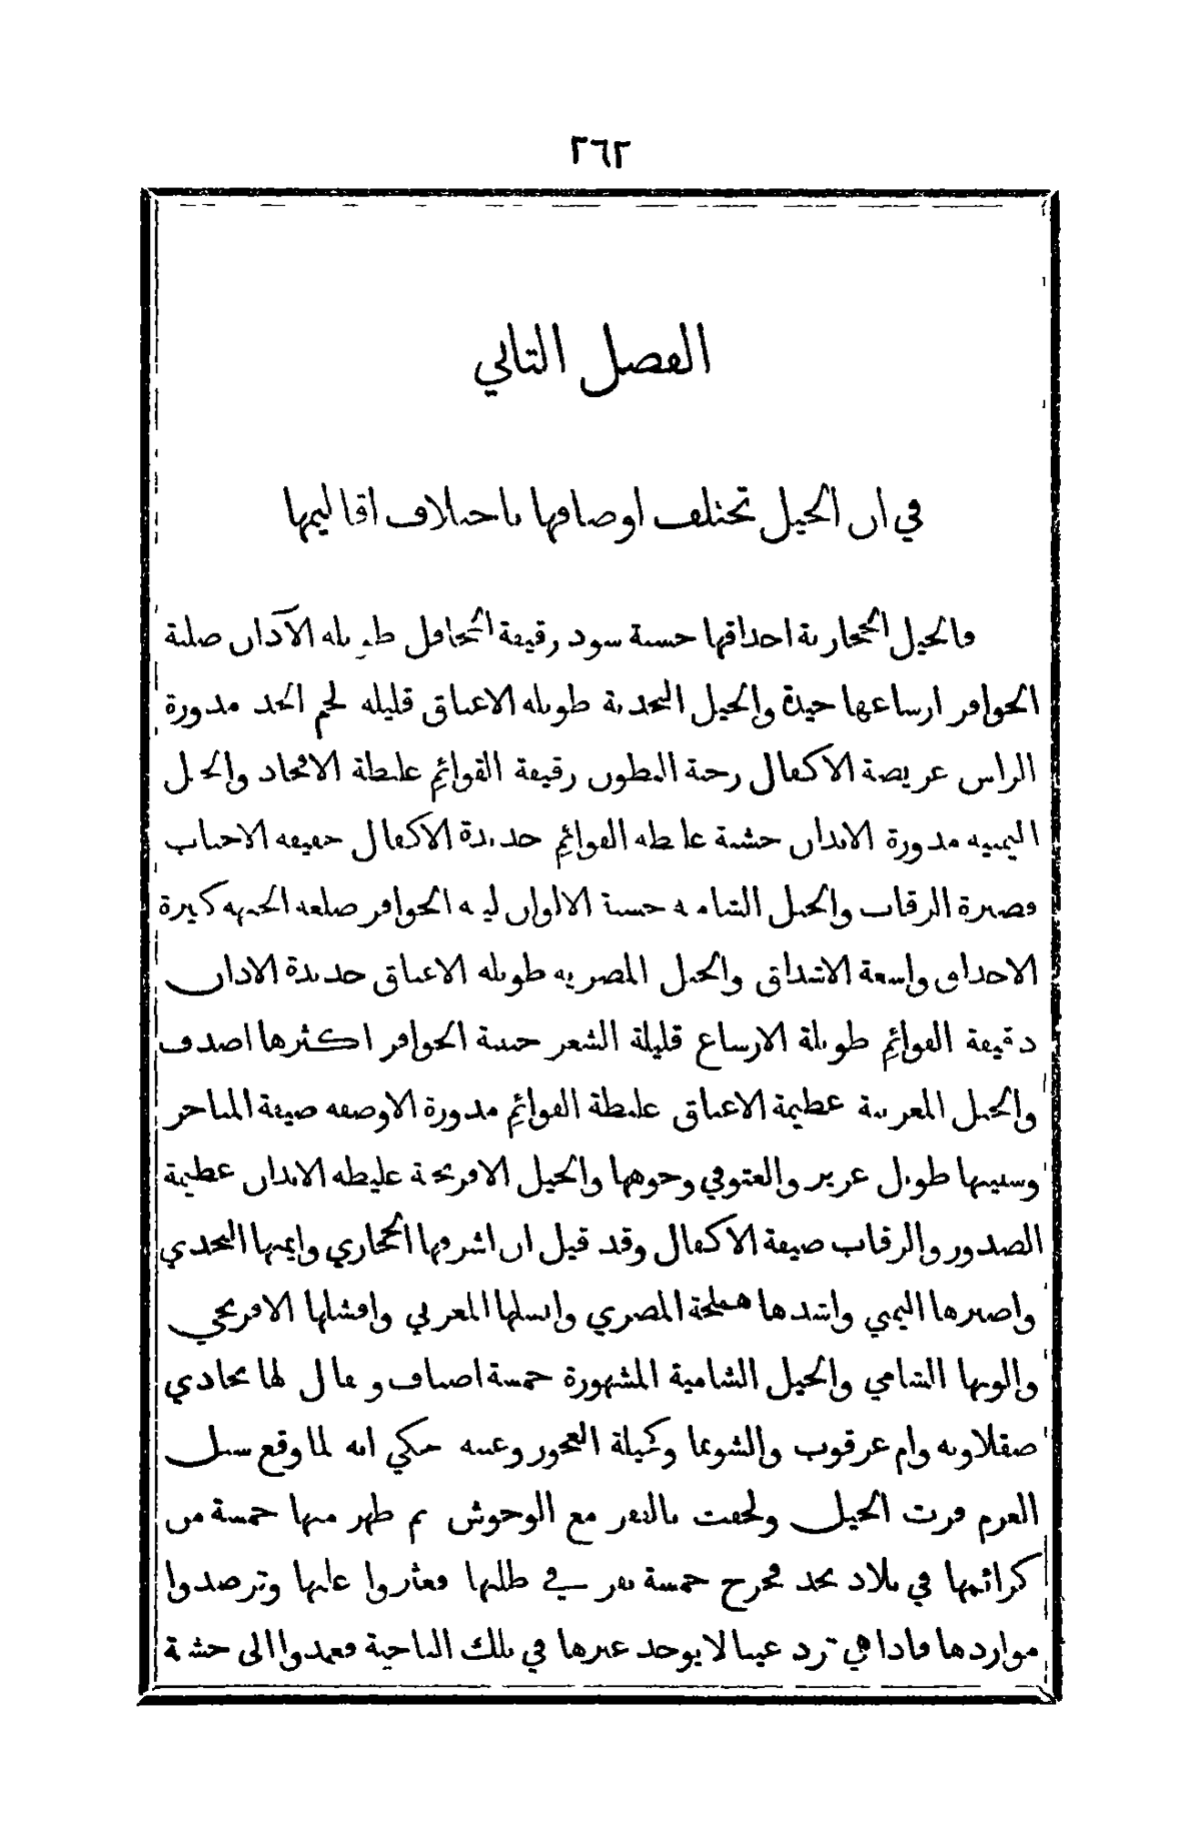 ٢٦٢
الفصل الثاني
في ان الخيل تختلف اوصافها باختلاف اقاليمها
فالخيل الحجازية احداقها حسنة سود رقيقة الجحافل طويلة الآذان صلبة
الحوافر ارساغها جيدة والخيل النجدية طويلة الاعناق قليلة لحم الخد مدورة
الراس عريضة الاكفال رحبة البطون رقيقة القوائم غليظة الافخاذ والخيل
اليمنية مدورة الابدان خشنة غليظة القوائم حديدة الاكفال خفيفة الاجناب
قصيرة الرقاب والخيل الشامية حسنة الالوان لينة الحوافر صلعة الجبهة كبيرة
الاحداق واسعة الاشداق والخيل المصرية طويلة الاعناق حديدة الاذان
دقيقة القوائم طويلة الارساغ قليلة الشعر حسنة الحوافر اكثرها اصدف
والخيل المغربية عظيمة الاعناق غليظة القوائم مدورة الاوظفة ضيقة المناخر
وسبيبها طويل غزير والعتو في وجوهها والخيل الافرنجية غليظة الابدان عظيمة
الصدور والرقاب ضيقة الاكفال وقد قيل ان اشرفها الحجازي وايمنها النجدي
واصبرها اليمني واشدها هملجة المصري وانسلها المغربي وافشلها الافرنجي
والونها الشامي والخيل الشامية المشهورة خمسة اصناف ويقال لها نجادي
صقلاوية وام عرقوب والشويما وكحيلة العجوز وعبية حكي انه لما وقع سيل
العرم فرت الخيل ولحقت بالقفر مع الوحوش ثم ظهر منها خمسة من
كرائمها في بلاد نجد فخرج خمسة نفر في طلبها فعثروا عليها وترصدوا
مواردها فاذا هي ترد عينا لا يوجد غيرها في تلك الناحية فعمدوا الى خشبة